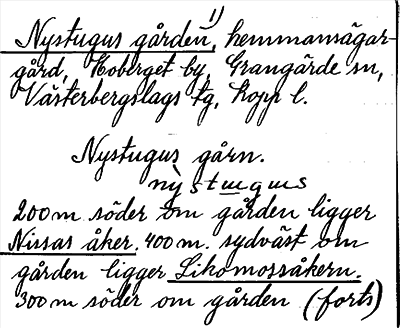 Nystugus gården, 1) hemmansägar-
gård, Koberget by, Grangärde sn,
Västerbergslags tg, Kopp l.
Nystugus gårn.
nỳstugus
200 m söder om gården ligger
Nissas åker. 400 m. sydväst om
gården ligger Likomossåkern.
300 m söder om gården (forts)